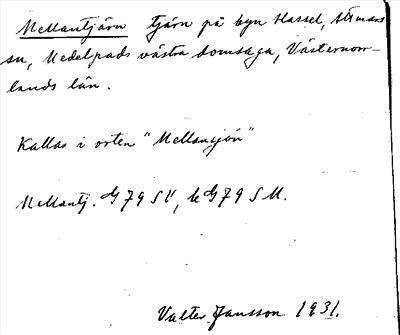 Mellantjärn tjärn på byn Hassel,
sn, Medelpads västra domsaga, Västernorr-
lands län.
Kallas i orten "Mellansjön"
Mellantj. G 79 SV, k G 79 S M.
Valter Jansson 1931.